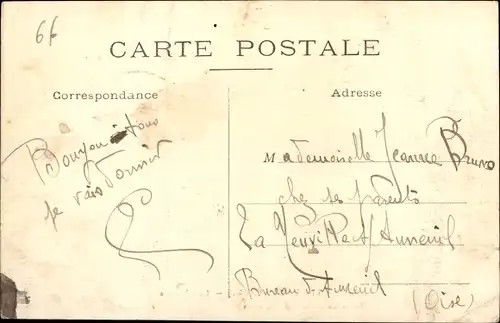 66
CARTE POSTALE
Correspondance
Adresse
Bonjour à tous
je vais
Mademoiselle Jeanne Bruno
chez ses parents
La Neuville s/ Auneuil
Bureau d'Auneuil
(Oise)